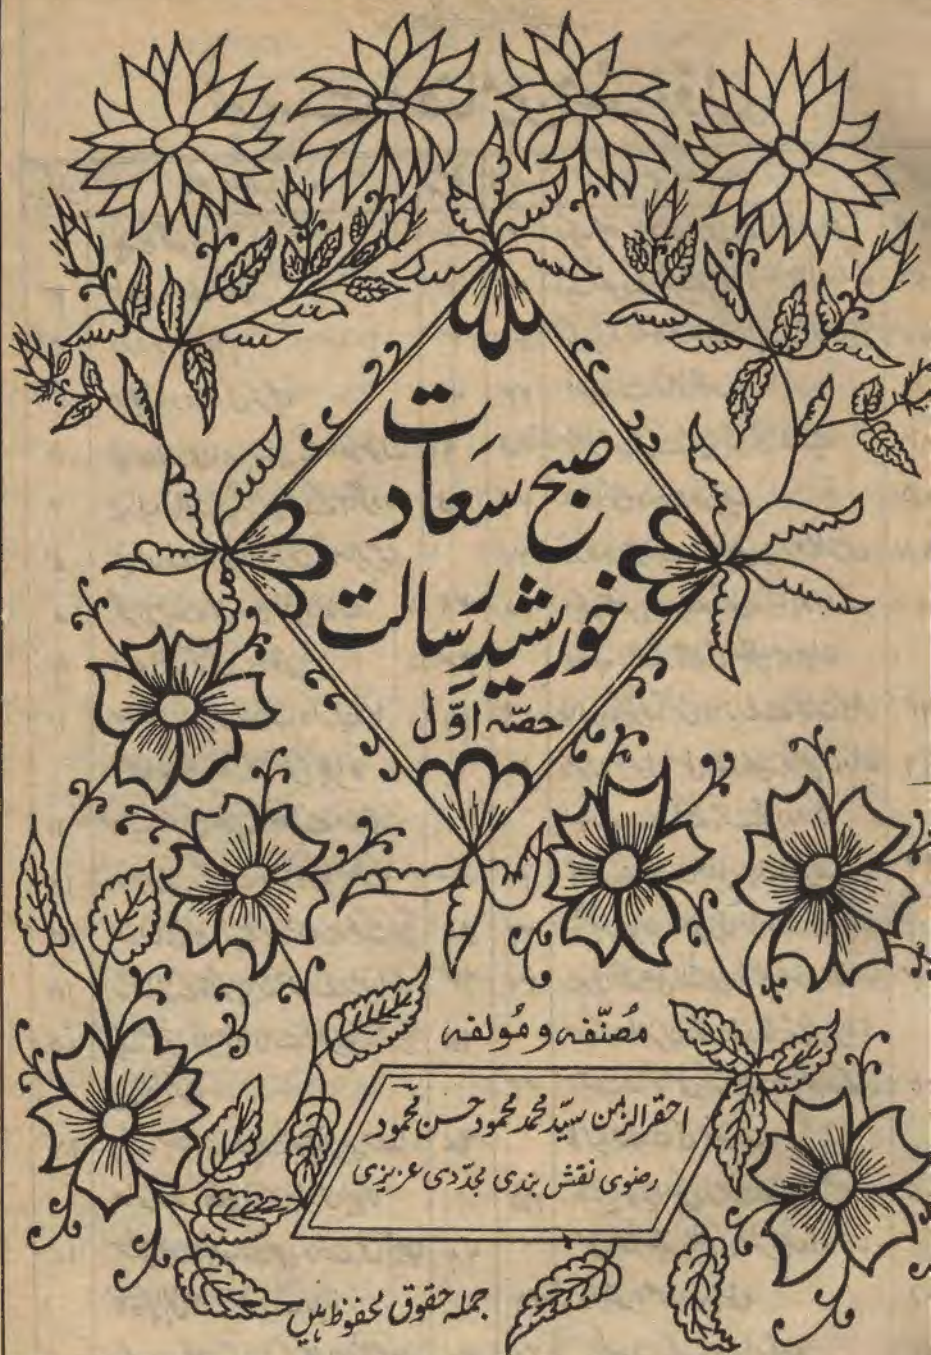 صبح سعادت
خورشیدِ رسالت
حصّہ اوّل
مُصنّفہ و مُولفہ
احقر الزمن سیّد محمد محمود حسن محمود
رضوی نقش بندی مجدّدی عزیزی
جملہ حقوق محفوظ ہیں